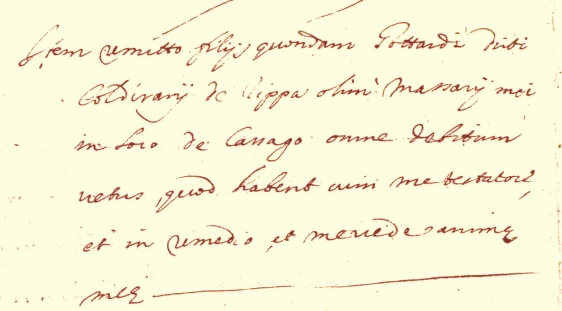 Item remitto filijs quondam Gottardi dicti
Coldirarij de Rippa olim Massarij mei
in loco de Cassago omne debitum
vetus, quod habent cum me testatore,
et in remedio, et mercede animę
meę